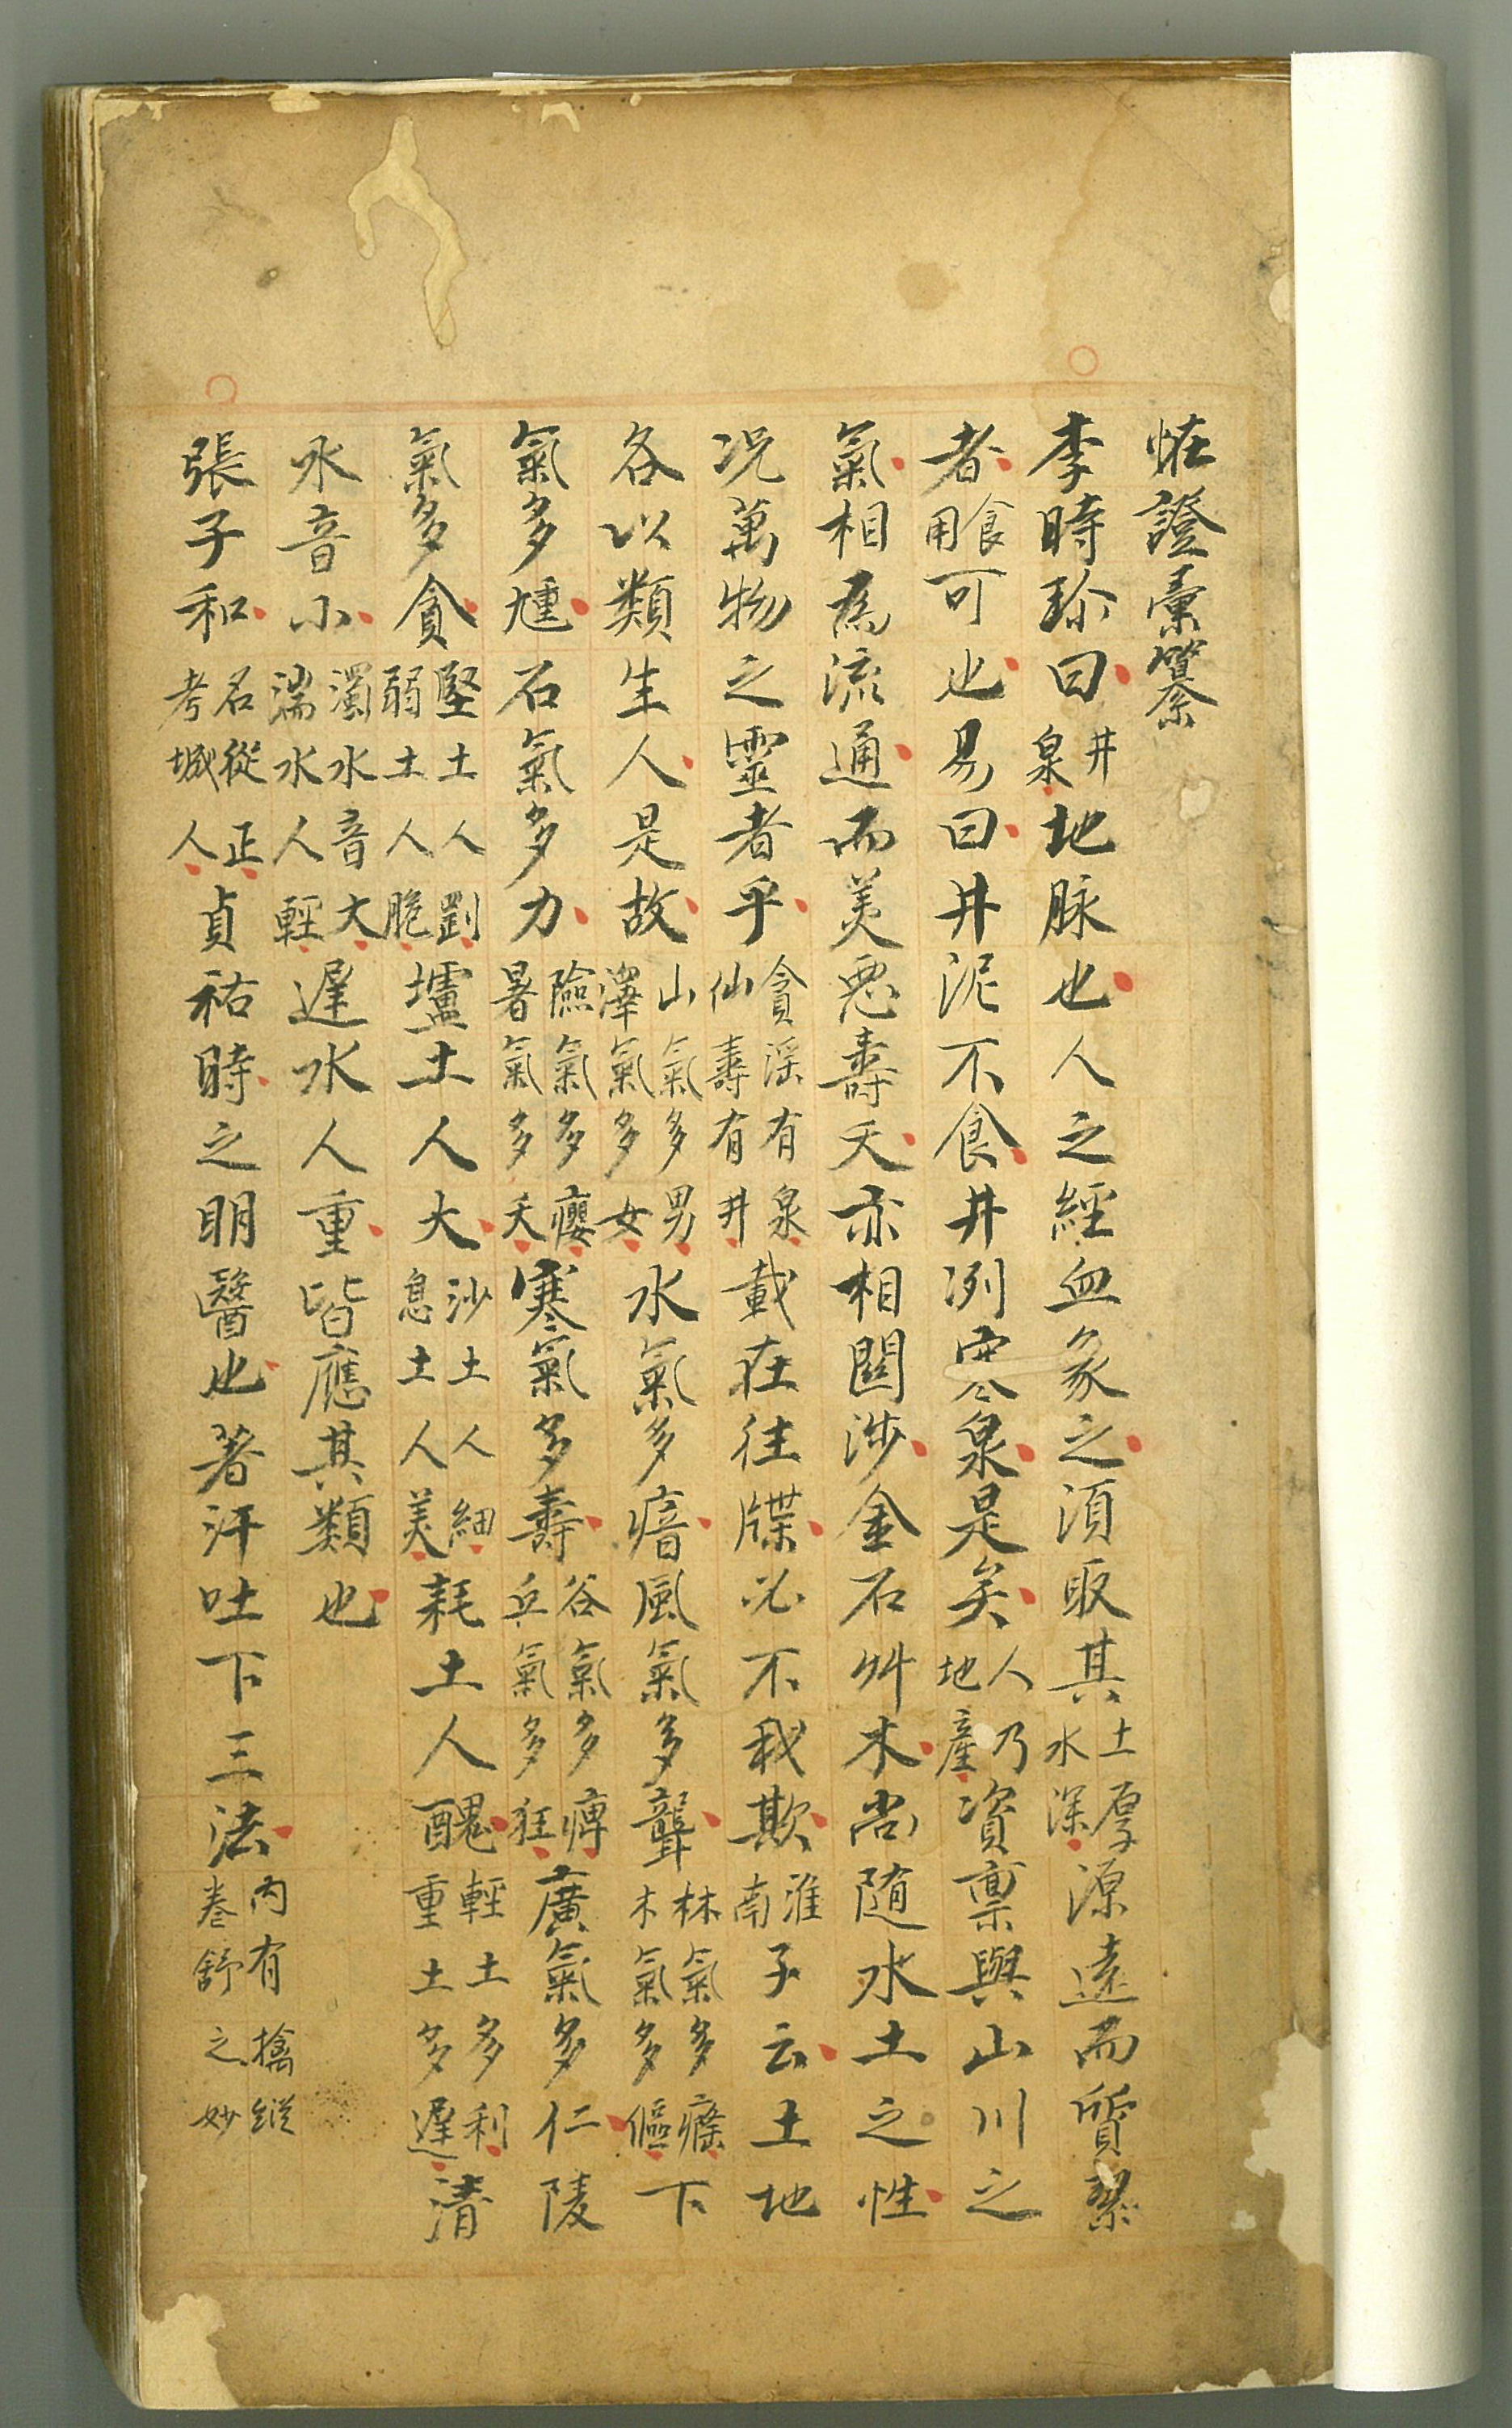 怪證彙纂
李時珍曰井泉地脉也人之經血象之須取其土厚水深源遠而質絜
者食用可也易曰井泥不食井冽寒泉是矣人乃地産資禀與山川之
氣相為流通而美惡壽夭亦相關涉金石艸木尚随水土之性
况萬物之靈者乎貪淫有泉仙壽有井載在往牒必不我欺淮南子云土地
各以類生人是故山氣多男澤氣多女水氣多瘖風氣多聾林氣多癃木氣多傴下
氣多尰石氣多力險氣多癭暑氣多夭寒氣多壽谷氣多痺丘氣多狂廣氣多仁陵
氣多貪堅土人剛弱土人脆壚土人大沙土人細息土人美耗土人醜輕土多利重土多遲清
水音小濁水音大湍水人輕遲水人重皆應其類也
張子和名從正考城人貞祐時之明醫也著汗吐下三法内有擒縱卷舒之妙